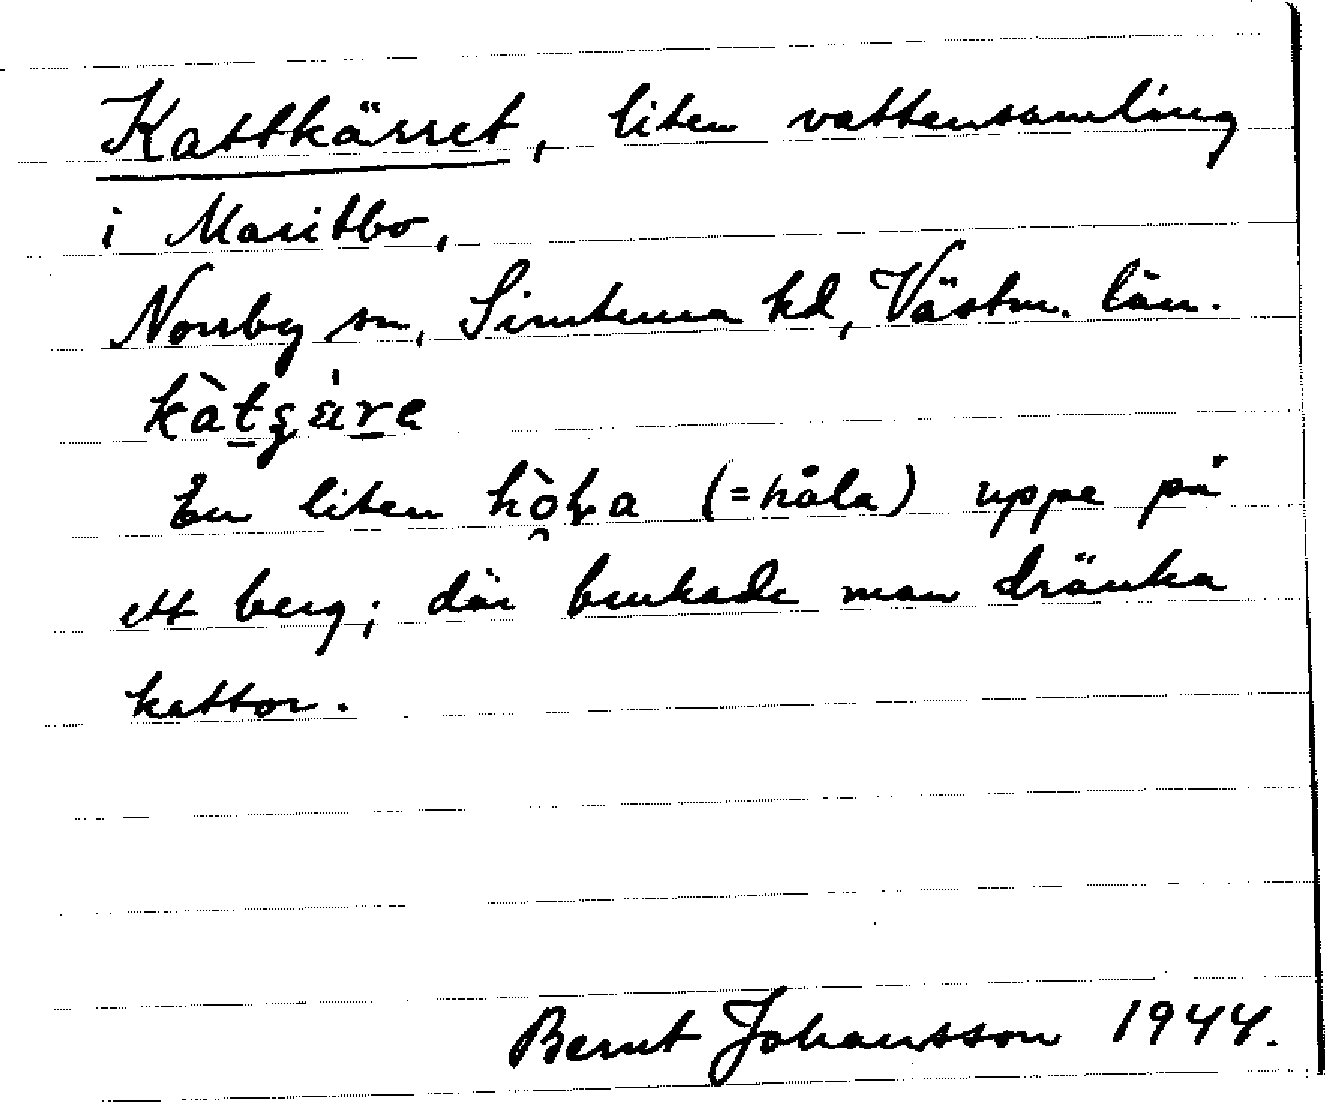 Kattkärret, liten vattensamling
i Maritbo,
Norrby sn, Simtuna hd, Västm. län.
kàtʂä̀re
En liten hòḷa (=håla) uppe på
ett berg; där brukade man dränka
kattor.
Bernt Johansson 1944.